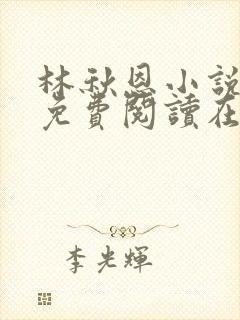 林秋恩小說
免費閱讀在
李光輝